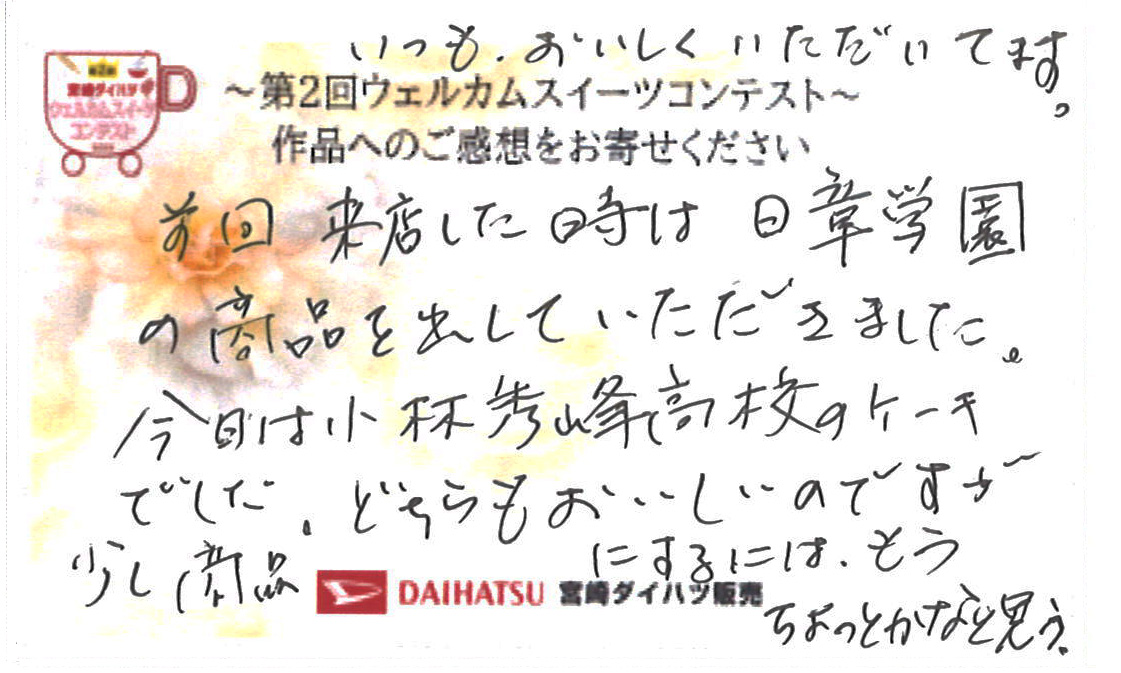 いつも、おいしくいただいてます。
第2回
宮崎ダイハツ
ウェルカムスイーツ
コンテスト
～第2回ウェルカムスイーツコンテスト～
作品へのご感想をお寄せください
前回 来店した時は 日章学園
の商品を出していただきました。
今日は小林秀峰高校のケーキ
でした。どちらもおいしいのですが
少し商品にするには、もう
ちょっとかなと思う。
DAIHATSU 宮崎ダイハツ販売